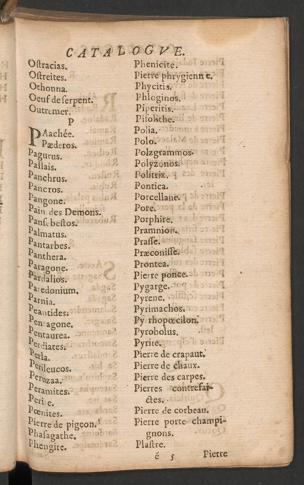 CATALOGVE.
Ostracias.
Ostreites.
Othonna.
Oeuf de serpent.
Outremer.
P
PAachée.
Pæderos.
Pagurus.
Pallais.
Panchrus.
Pancros.
Pangone.
Pain des Demons.
Pansebestos.
Palmatus.
Pantarbes.
Panthera.
Paragone.
Pardalios.
Paredonium.
Parnia.
Peantides.
Pentagone.
Pentaurea.
Perdiates.
Perla.
Perileucos.
Perazaa.
Peramites.
Perise.
Pœnites.
Pierre de pigeon.
Phasagathe.
Phengite.
Phenicite.
Pierre phrygienne.
Phycitis.
Phloginos.
Piperitis.
Pisolithe.
Polia.
Polo.
Polzgrammos.
Polyzonos.
Politrix.
Pontica.
Porcellane.
Pore.
Porphire.
Pramnion.
Prasse.
Præconisse.
Prontea.
Pierre ponce.
Pygarge.
Pyrene.
Pyrimachos.
Pyrhopœcilon.
Pyrobolus.
Pyrite.
Pierre de crapaut.
Pierre de chaux.
Pierre des carpes.
Pierres contrefai-
ctes.
Pierre de corbeau.
Pierre porte champi-
gnons.
Plastre.
é 5 Pierre